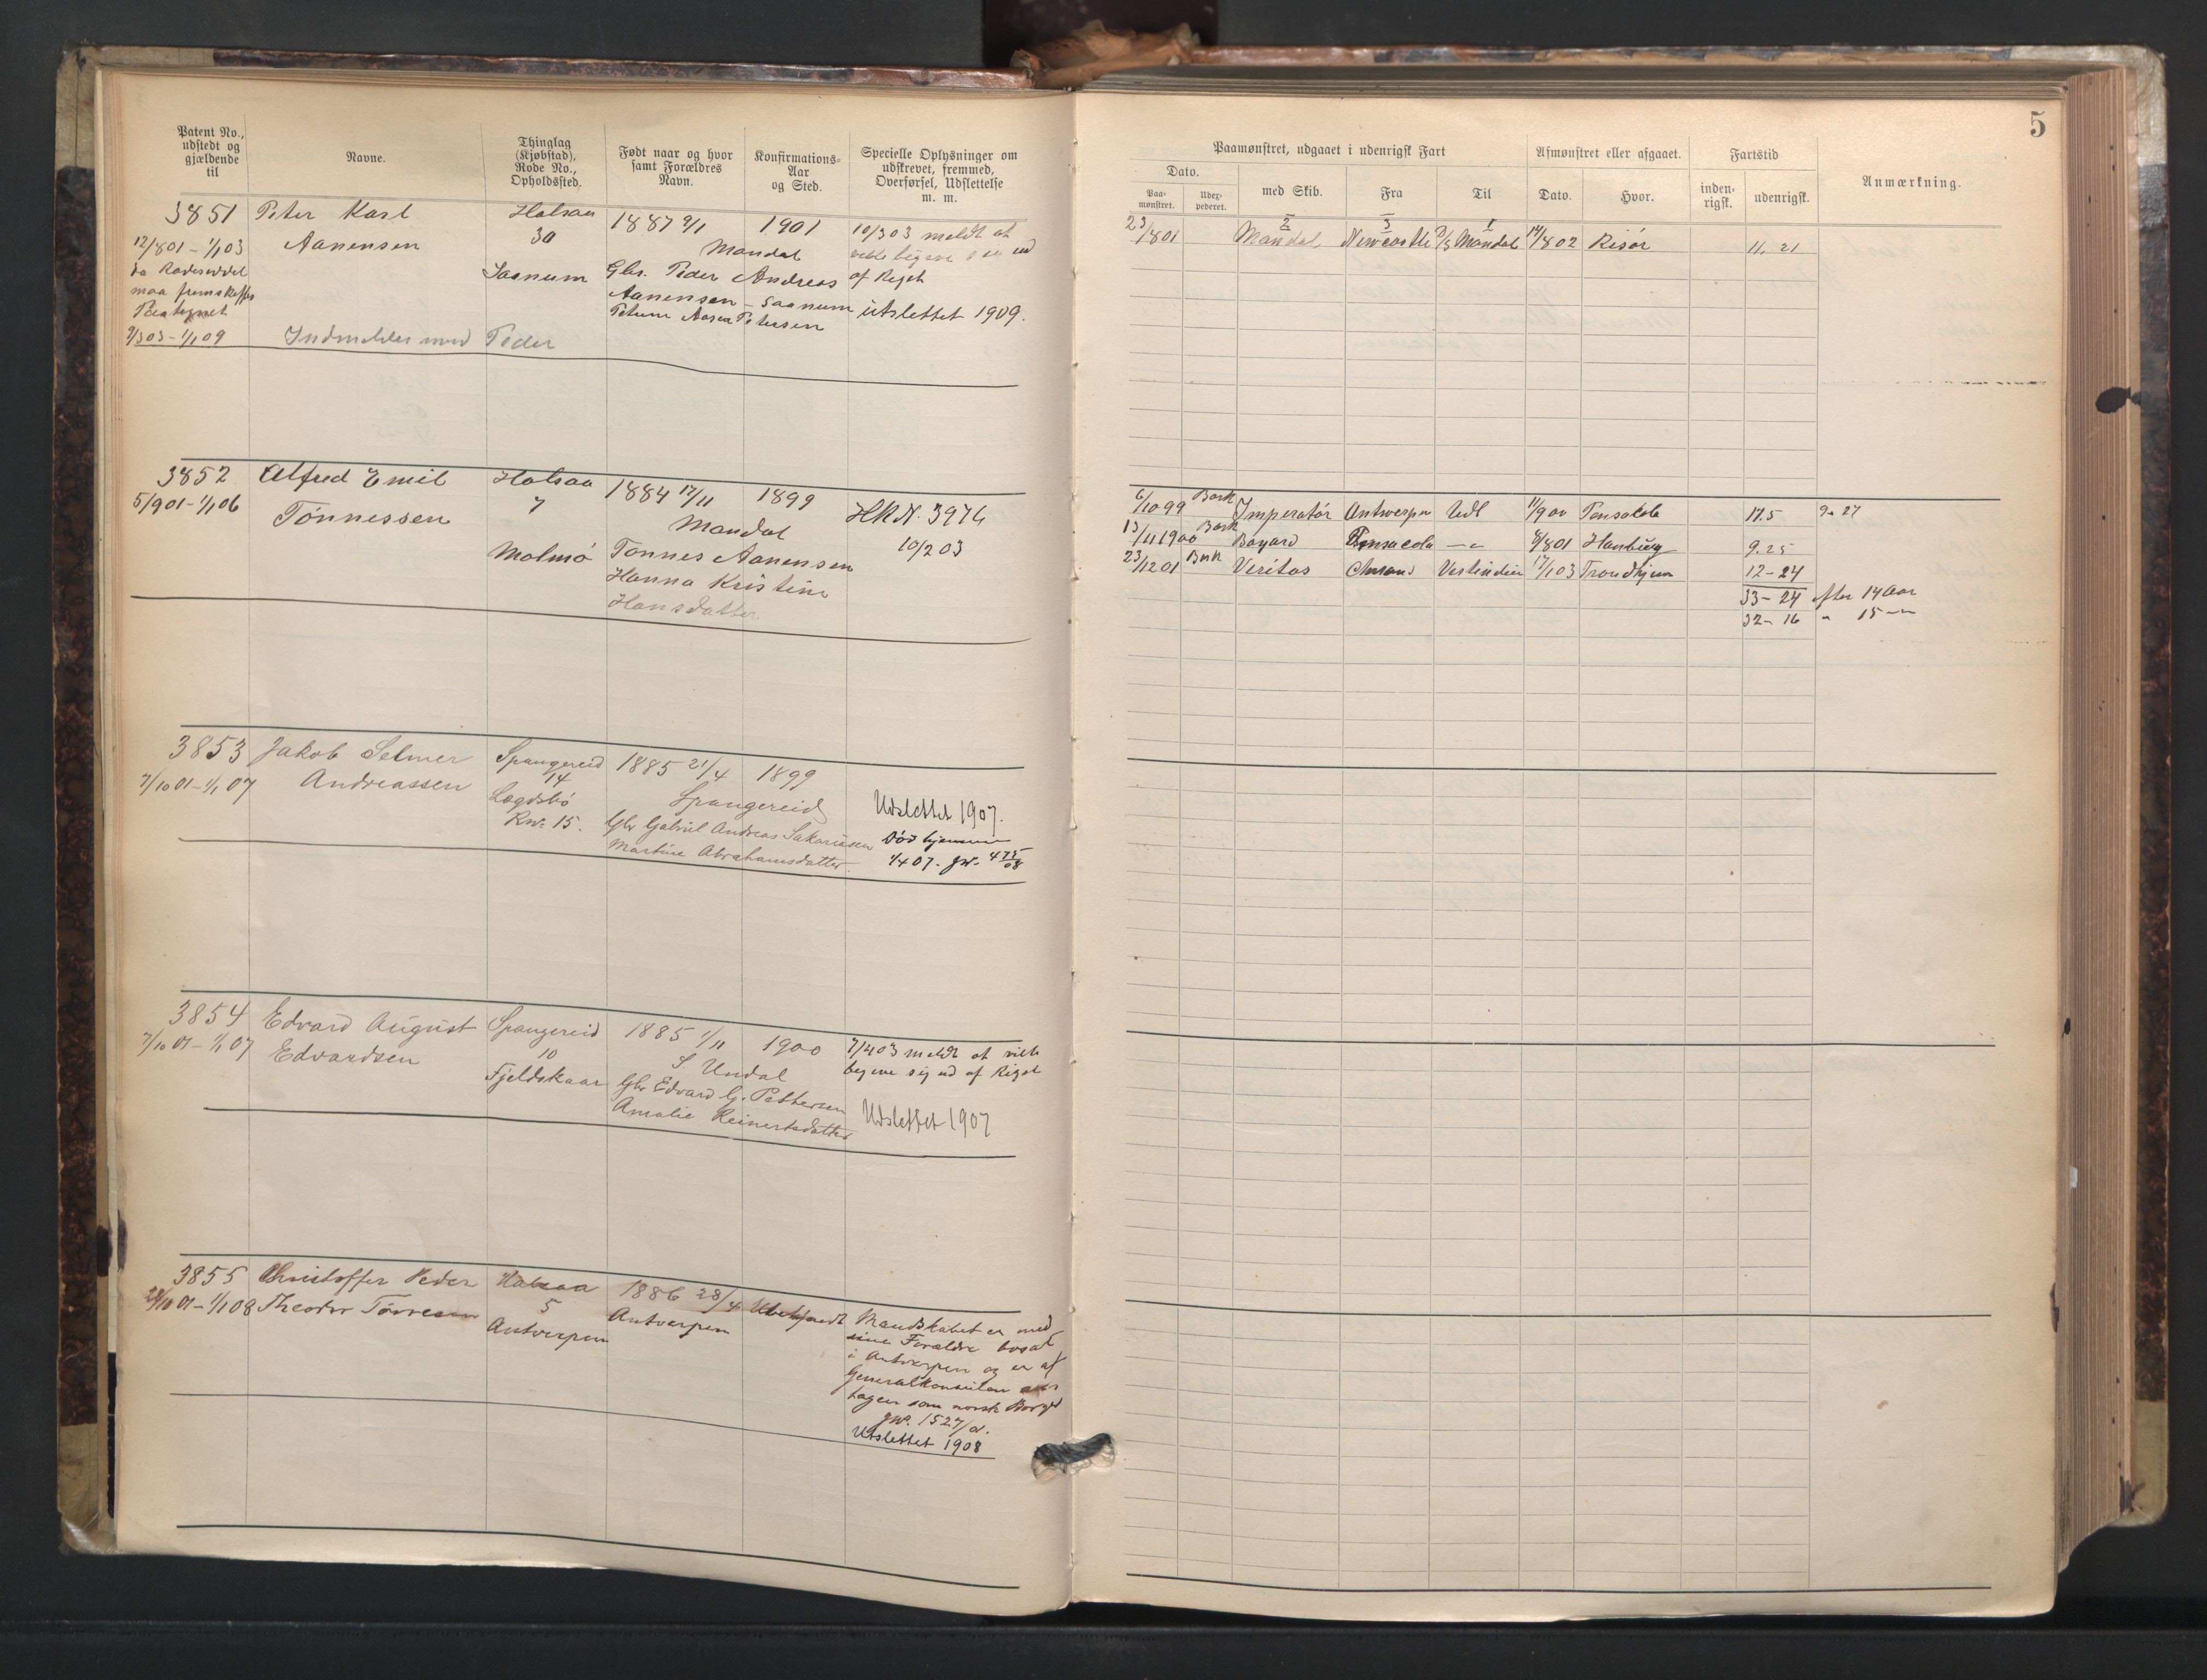 Patent No.,
udstedt og
gjældende
til
Navne.
Thinglag
(Kjøbstad),
Rode No.,
Opholdssted.
Født naar og hvor
samt Forældres
Navn.
Konfirmations-
Aar
og Sted.
Specielle Oplysninger om
udskrevet, fremmed,
Overførsel, Udslettelse
m. m.
3851
12/801 - 1/1 03
da Rodeseddel
maa fremskaffes
7/303 - 1/1 09
Peter Karl
Aanensen
Indmeldes med Peder
Halsaa
30
Saanum
1887 9/1 1901
Mandal
Gbr. Peder Andreas
Aanensen - Saanum
Petersen
10/303 meldt at
ville begive sig ud
af Riget
utslettet 1909.
3852
5/901 - 1/1 06
Alfred Emil
Tønnessen
Halsaa
7
Malmø
1884 17/11 1899
Mandal
Tønnes Aanensen
Hanna Kristine
Hansdatter.
HRN. 3974
10/2 03
3853
7/10 01 - 1/1 07
Jakob Selmer
Andreassen
Spangereid
14
Rno. 15.
1885 21/4 1899
Spangereid
Gbr Gabriel Andreas Sakariasen
Martine Abrahamsdatter.
Udslettet 1907.
Død hjemme
1/4 07. JNo. 475/08
3854
7/10 01 - 1/1 07
Edvard August
Edvardsen
Spangereid
10
Fjeldskaar
1885 1/11 1900
S Undal
Gbr Edvard G. Pettersen
Amalie Reinertsdatter
7/403 meldt at ville
begive sig ud af Riget
Udslettet 1907
3855
28/10 01 - 1/1 08
Christoffer Peder
Theodor Tørresen
Halsaa
5
Antwerpen
1886 28/4 Ubekjendt
Antverpen
Mandskabet er med
sine Forældre bosat
i Antverpen og er af
Generalkonsulen an-
tagen som norsk Borger
JNo. 1527/01.
Utslettet 1908
5
Paamønstret, udgaaet i udenrigsk Fart
Afmønstret eller afgaaet.
Fartstid
Anmærkning.
Dato.
Paa-
mønstret.
Udex-
pederet.
med Skib.
Fra
Til
Dato.
Hvor.
inden-
rigsk.
udenrigsk.
2 3 1
23/801 Mandal Newcastle 2/3 Mandal 14/802 Risør 11, 21
6/10 99 Bark Imperatør Antwerpen Udl 11/900 Pensacola 11.5 9-27
13/11 1900 Bark Bayard Pensacola -"- 8/801 Hamburg 9.25
23/12 01 Bark Veritas Chrsand Vestindien 17/1 03 Trondhjem 12-24
33-24 efter 14 Aar
32-16 " 15 -"-